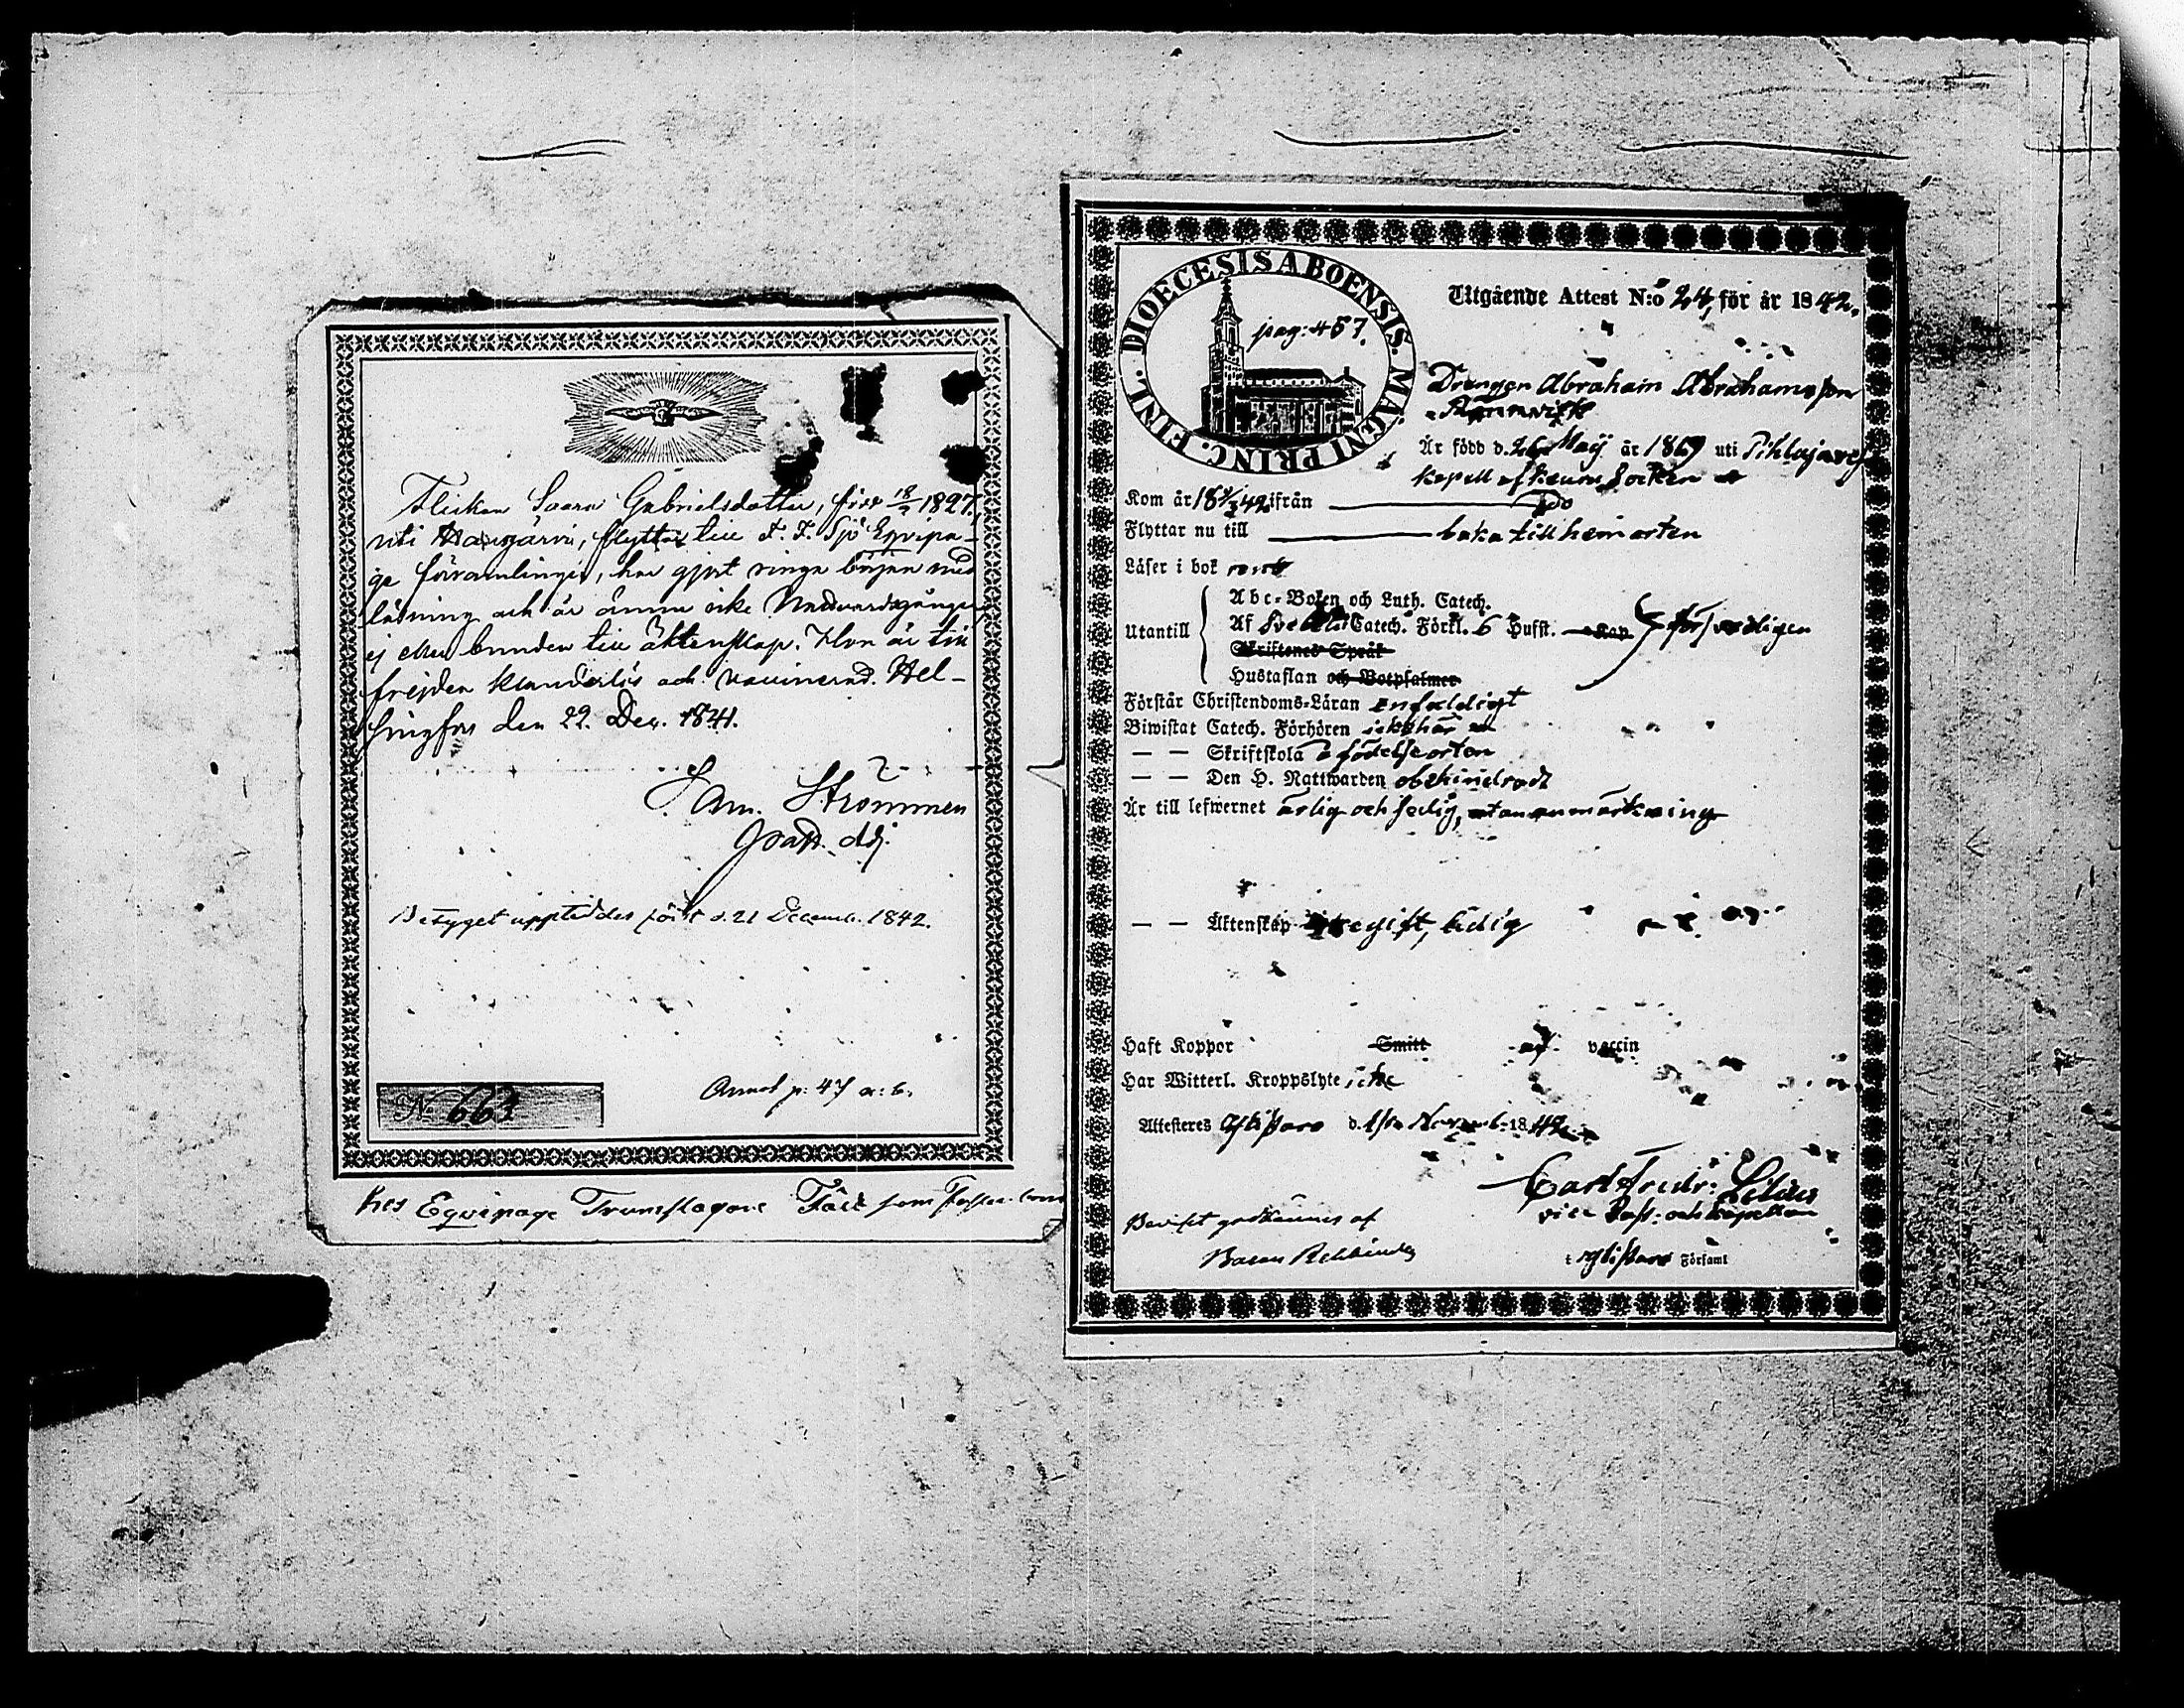 Flickan Saara Gabrielsdotter, född 18/7 1827,
uti flyttar till F. F. Sjö Eqvipa-
ge församlingen, har gjort ringa början med
läsning och är ännu icke Nattvardsgången
ej eller bunden till äktenskap. Hon är till
frejden klanderlös och vaccinerad. Hel-
singfors den 22. Dec. 1841.
Sam. Strömmen
Adj.
Betyget uppteddes först d. 21 Decemb. 1842.
No 663
Annot p: 47 a: b.
hos Eqvipage Trumslagare som
DIOECESIS ABOENSIS. MAGNI PRINC. FINL.
pag: 457.
Utgående Attest N:o 24, för år 1842.
Drengen Abraham Abrahamsson
Är född d. Maij år uti Pihlajavesi
kapell af Keuru Socken
Kom år ifrån
Flyttar nu till baka till hemorten
Läser i bok
Abc-Boken och Luth. Catech.
Utantill Af Catech. Förkl. 6 Hufst. Kap. försvarligen
Skriftenes Språk
Hustaflan och Botpsalmer
Förstår Christendoms-Läran enfaldigt
Biwistat Catech. Förhören icke här
— — Skriftskola å födelseorten
— — Den H. Nattwarden obehindradt
Är till lefwernet ärlig och sedig, utan anmärkning
— — Äktenskap ogift, ledig
Haft Koppor Smitt af vaccin
Har Witterl. Kroppslyte icke
Attesteras Ylistaro d. Novemb. 1842
Carl Fredr:
vice Past: och Kapellan
Beviset godkännes af
i Ylistaro Församl